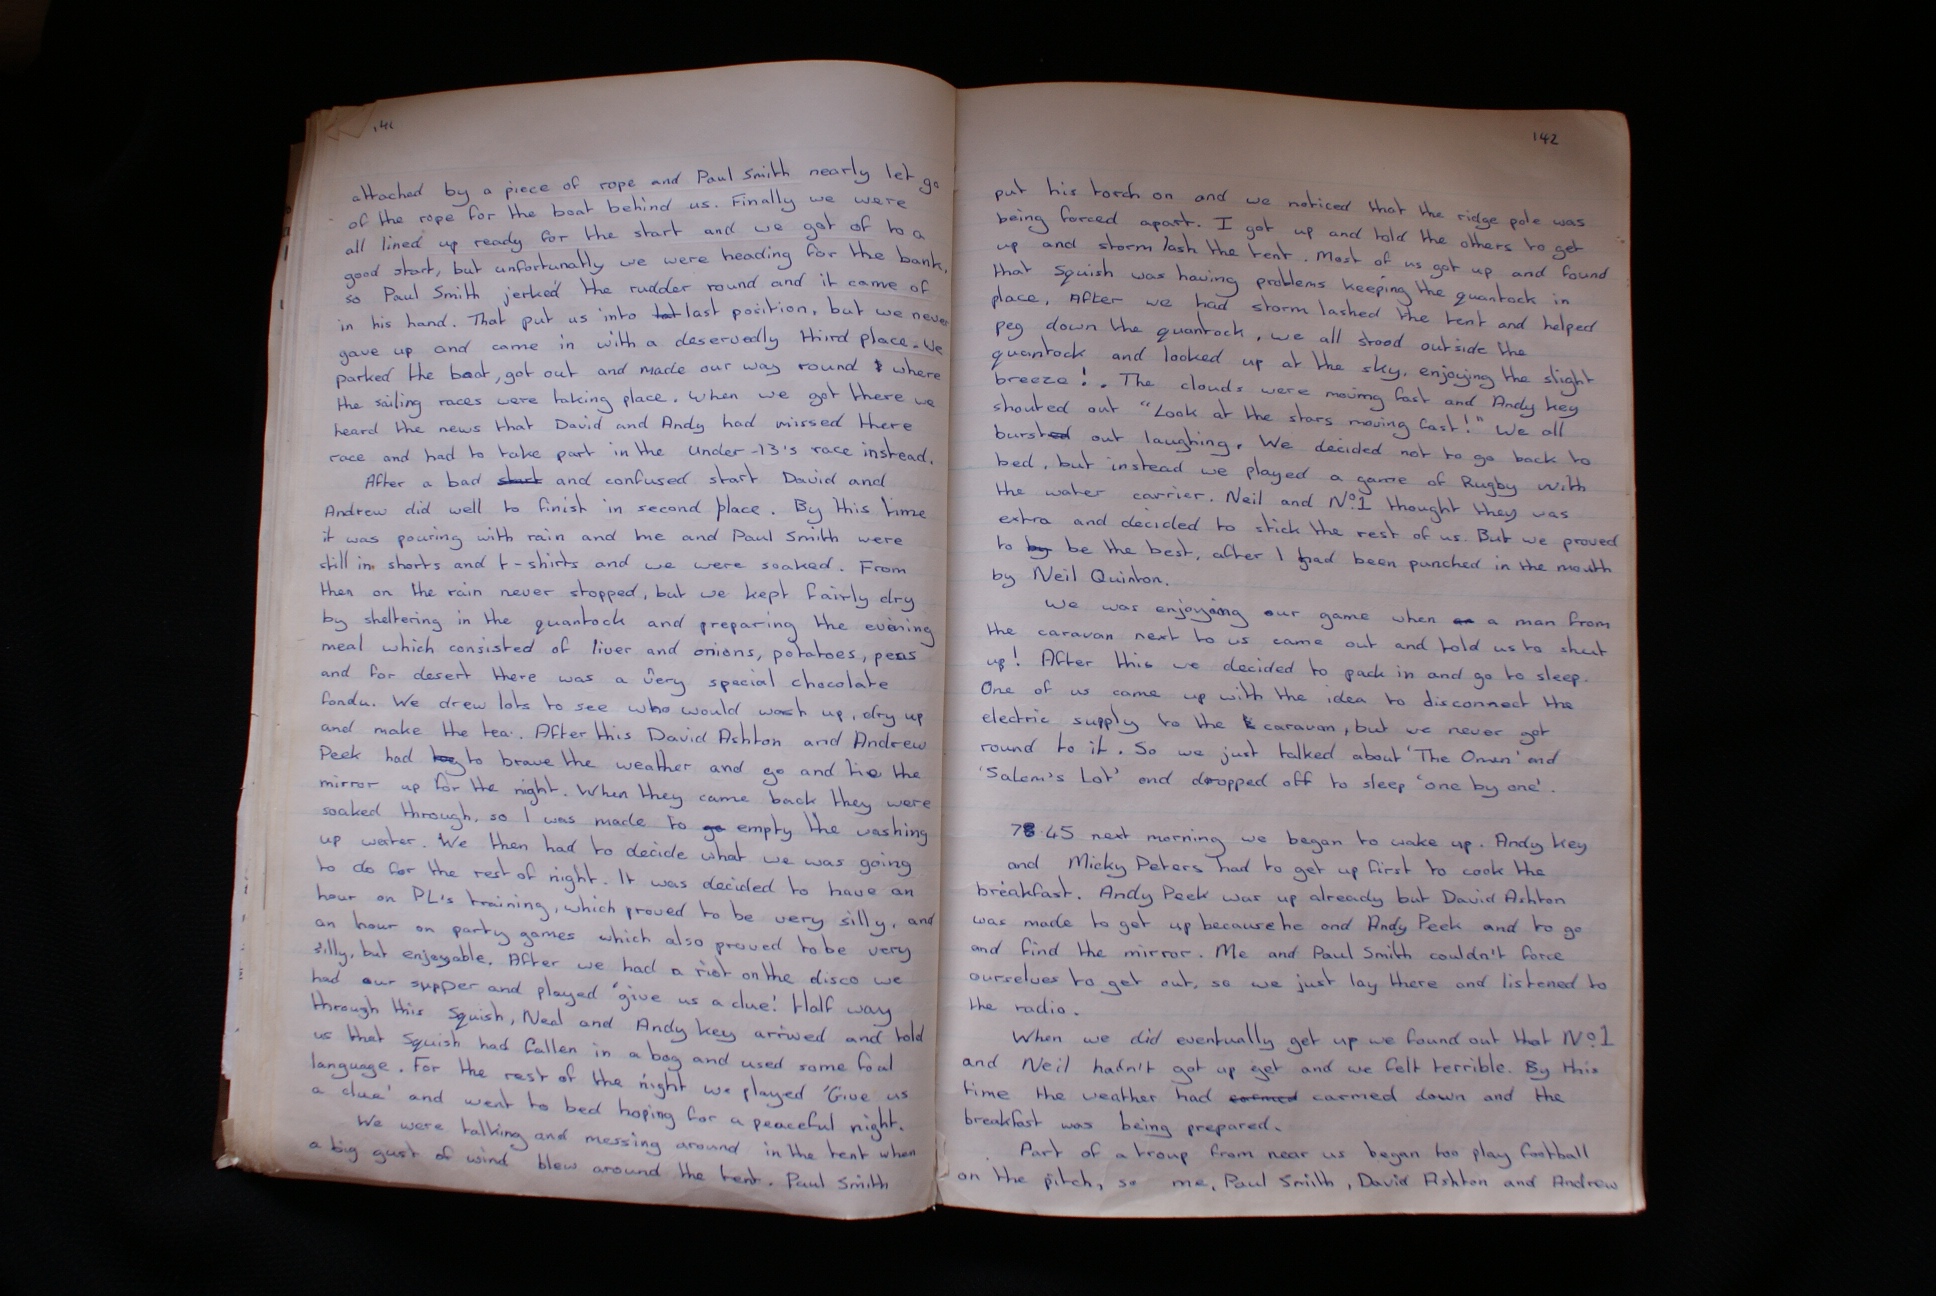 141
attached by a piece of rope and Paul Smith nearly let go
of the rope for the boat behind us. Finally we were
all lined up ready for the start and we got of to a
good start, but unfortunatly we were heading for the bank,
so Paul Smith jerked the rudder round and it came of
in his hand. That put us into last position, but we never
gave up and came in with a deservedly third place. We
parked the boat, got out and made our way round where
the sailing races were taking place. When we got there we
heard the news that David and Andy had missed there
race and had to take part in the under-13's race instead.
After a bad start and confused start David and
Andrew did well to finish in second place. By this time
it was pouring with rain and me and Paul Smith were
still in shorts and t-shirts and we were soaked. From
then on the rain never stopped, but we kept fairly dry
by sheltering in the quantock and preparing the evening
meal which consisted of liver and onions, potatoes, peas
and for desert there was a very special chocolate
fondu. We drew lots to see who would wash up, dry up
and make the tea. After this David Ashton and Andrew
Peek had to brave the weather and go and tie the
mirror up for the night. When they came back they were
soaked through, so I was made to go empty the washing
up water. We then had to decide what we was going
to do for the rest of night. It was decided to have an
hour on PL's training, which proved to be very silly, and
an hour on party games which also proved to be very
silly, but enjoyable. After we had a riot on the disco we
had our supper and played 'give us a clue! Half way
through this Squish, Neal and Andy Key arrived and told
us that Squish had fallen in a bog and used some foul
language. For the rest of the night we played 'Give us
a clue' and went to bed hoping for a peaceful night.
We were talking and messing around in the tent when
a big gust of wind blew around the tent. Paul Smith
142
put his torch on and we noticed that the ridge pole was
being forced apart. I got up and told the others to get
up and storm lash the tent. Most of us got up and found
that Squish was having problems keeping the quantock in
place. After we had storm lashed the tent and helped
peg down the quantock, we all stood outside the
quantock and looked up at the sky, enjoying the slight
breeze!. The clouds were moving fast and Andy Key
shouted out "Look at the stars moving fast!" We all
bursted out laughing. We decided not to go back to
bed, but instead we played a game of Rugby with
the water carrier. Neil and Nº1 thought they was
extra and decided to stick the rest of us. But we proved
to by be the best, after I had been punched in the mouth
by Neil Quinton.
We was enjoying our game when a man from
the caravan next to us came out and told us to shut
up! After this we decided to pack in and go to sleep.
One of us came up with the idea to disconnect the
electric supply to the caravan, but we never got
round to it. So we just talked about 'The Omen' and
'Salem's Lot' and dropped off to sleep 'one by one'.
7.45 next morning we began to wake up. Andy Key
and Micky Peters had to get up first to cook the
breakfast. Andy Peek was up already but David Ashton
was made to get up because he and Andy Peek and to go
and find the mirror. Me and Paul Smith couldn't force
ourselves to get out, so we just lay there and listened to
the radio.
When we did eventually get up we found out that Nº1
and Neil hadn't got up yet and we felt terrible. By this
time the weather had carmed down and the
breakfast was being prepared.
Part of a troup from near us began too play football
on the pitch, so me, Paul Smith, David Ashton and Andrew